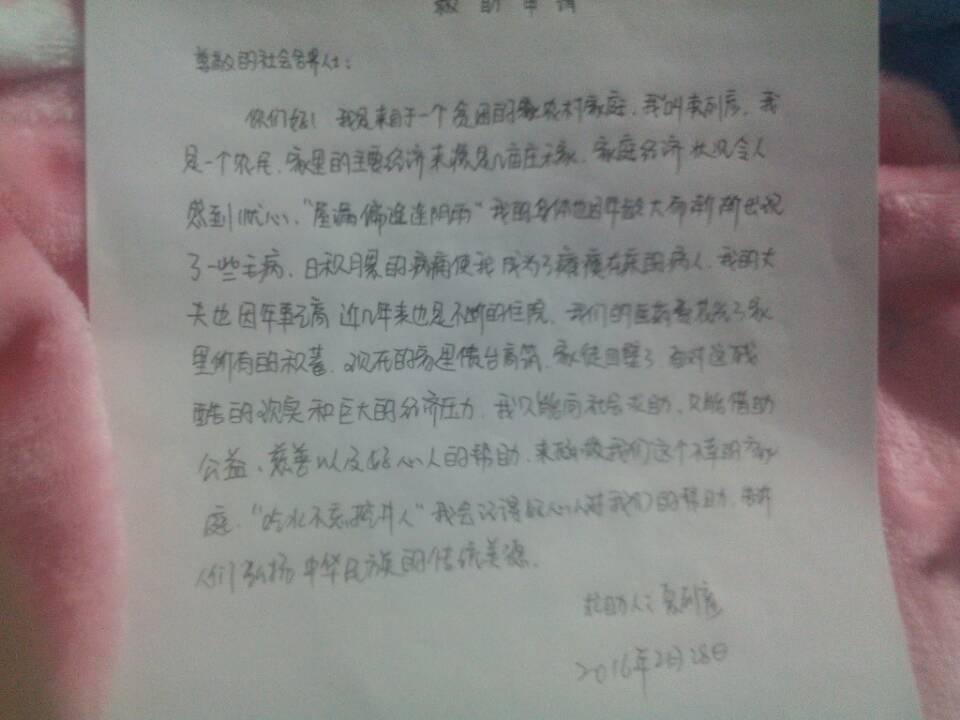 救助申请
尊敬的社会各界人士：
你们好！我是来自于一个贫困的农村家庭，我叫
是一个农民，家里的主要经济来源是几亩庄稼，家庭经济状况令人
感到忧心，"屋漏偏逢连阴雨"我的身体也因年龄大而渐渐出现
了一些毛病，日积月累的病痛使我成为了瘫痪在床的病人，我的丈
夫也因年事已高近几年来也是不断的住院，我们的医药费花光了家
里所有的积蓄，现在的家里债台高筑，家徒四壁了面对这残
酷的现实和巨大的经济压力，我只能向社会求助，只能借助
公益、慈善以及好心人的帮助，来我们这个不幸的家
庭，"吃水不忘挖井人"我会记得好心人对我们的帮助，
人们弘扬中华民族的传统美德。
求助人：
2016年2月28日